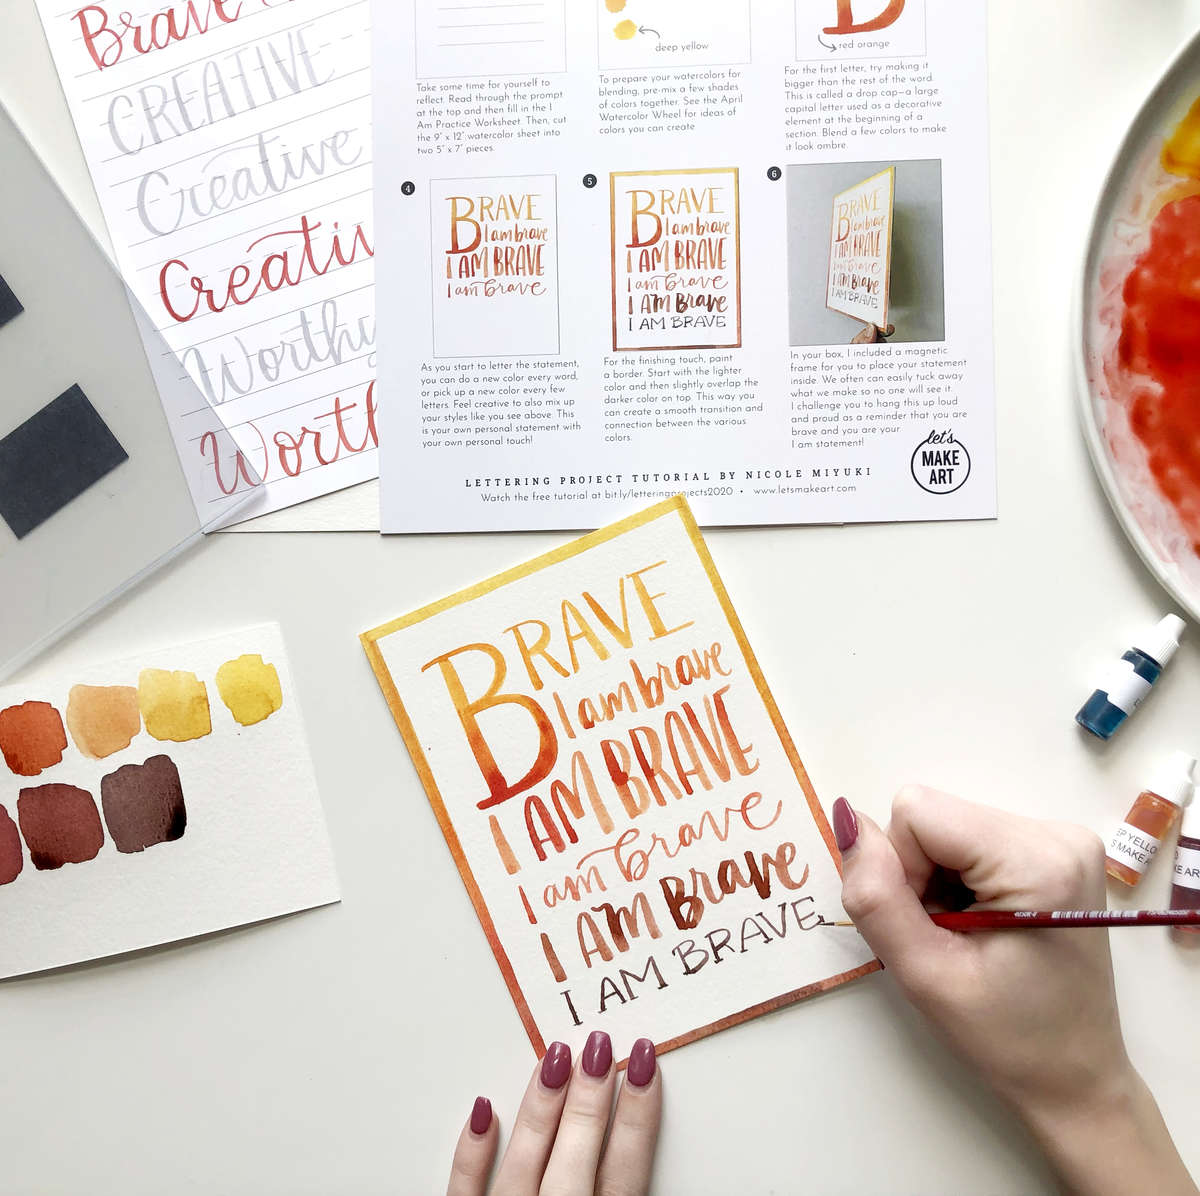 Brave
CREATIVE
Creative
Creativ
Worthy
Worth
deep yellow
B
red orange
Take some time for yourself to
reflect. Read through the prompt
at the top and then fill in the I
Am Practice Worksheet. Then, cut
the 9" x 12" watercolor sheet into
two 5" x 7" pieces.
To prepare your watercolors for
blending, pre-mix a few shades
of colors together. See the April
Watercolor Wheel for ideas of
colors you can create
For the first letter, try making it
bigger than the rest of the word.
This is called a drop cap—a large
capital letter used as a decorative
element at the beginning of a
section. Blend a few colors to make
it look ombre.
4
BRAVE
I am brave
I AM BRAVE
I am brave
As you start to letter the statement,
you can do a new color every word,
or pick up a new color every few
letters. Feel creative to also mix up
your styles like you see above. This
is your own personal statement with
your own personal touch!
5
BRAVE
I am brave
I AM BRAVE
I am brave
I AM Brave
I AM BRAVE
For the finishing touch, paint
a border. Start with the lighter
color and then slightly overlap the
darker color on top. This way you
can create a smooth transition and
connection between the various
colors.
6
BRAVE
I am brave
I AM BRAVE
I am brave
I AM Brave
I AM BRAVE
In your box, I included a magnetic
frame for you to place your statement
inside. We often can easily tuck away
what we make so no one will see it.
I challenge you to hang this up loud
and proud as a reminder that you are
brave and you are your
I am statement!
let's
MAKE
ART
LETTERING PROJECT TUTORIAL BY NICOLE MIYUKI
Watch the free tutorial at bit.ly/letteringprojects2020 • www.letsmakeart.com
BRAVE
I am brave
I AM BRAVE
I am brave
I AM Brave
I AM BRAVE
EP YELLO
S MAKE A
KE AR